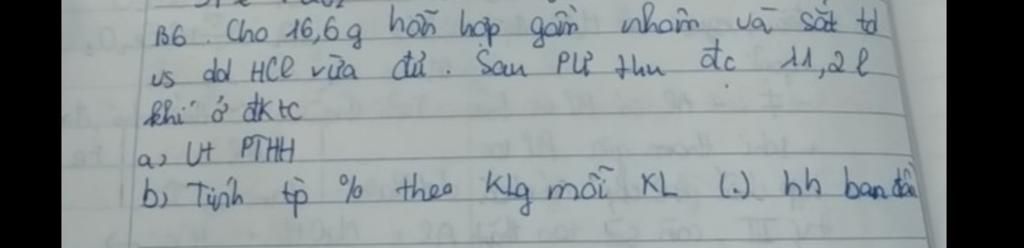 B6. Cho 16,6g hỗn hợp gồm nhôm và sắt td
vs dd HCl vừa đủ. Sau PƯ thu đc 11,2l
khí ở đktc
a, Vt PTHH
b, Tính tp % theo klg mỗi KL (.) hh ban đầ